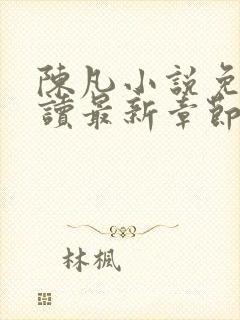 陳凡小說免
讀最新章節
林楓